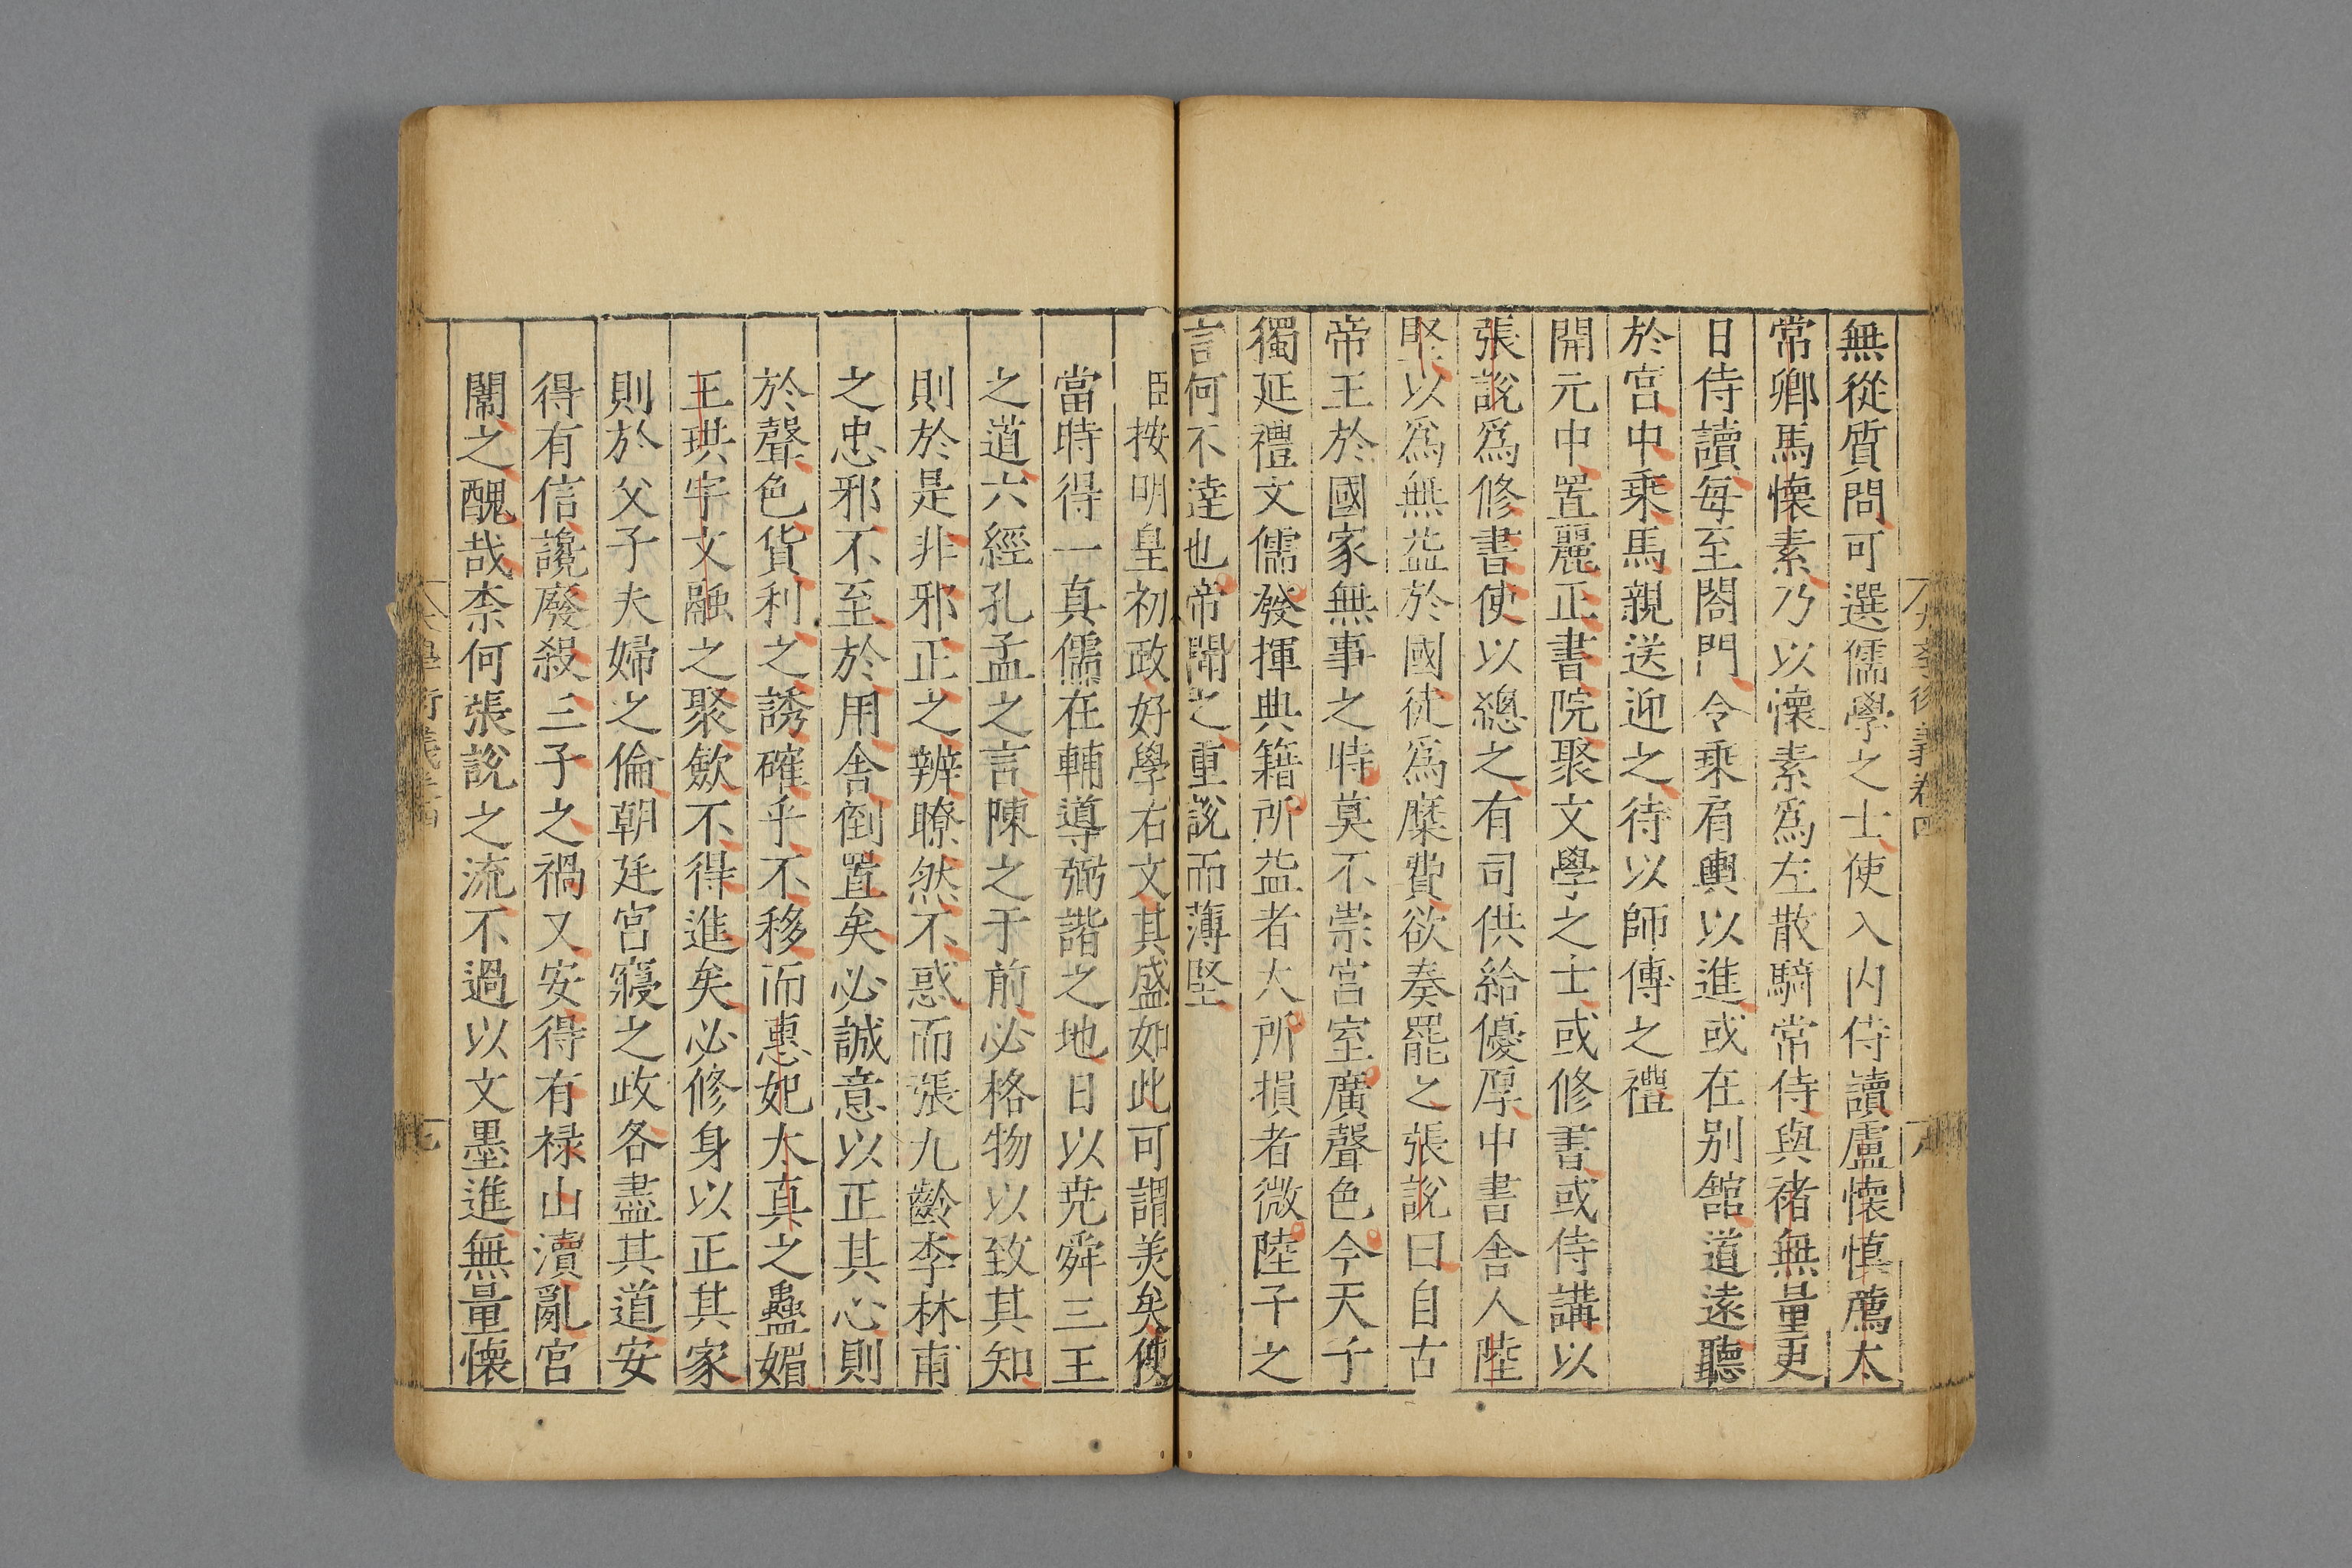 無從質問可選儒學之士使入内侍讀盧懷慎薦太
常卿馬懷素乃以懷素爲左散騎常侍與褚無量更
日侍讀每至閤門令乗肩輿以進或在别舘道遠聽
於宮中乗馬親送迎之待以師傅之禮
開元中置麗正書院聚文學之士或修書或侍講以
張說爲修書使以總之有司供給優厚中書舍人陸
堅以爲無益於國徒爲糜費欲奏罷之張說曰自古
帝王於國家無事之時莫不崇宮室廣聲色今天子
獨延禮文儒發揮典籍所益者大所損者微陸子之
言何不達也帝聞之重說而薄堅
臣按明皇初政好學右文其盛如此可謂美矣使
當時得一真儒在輔導弼諧之地日以尭舜三王
之道六經孔孟之言陳之于前必格物以致其知
則於是非邪正之辨瞭然不惑而張九齡李林甫
之忠邪不至於用舍倒置矣必誠意以正其心則
於聲色貨利之誘確乎不移而惠妃太真之蠱媚
王珙宇文融之聚歛不得進矣必修身以正其家
則於父子夫婦之倫朝廷宮寢之政各盡其道安
得有信讒廢殺三子之禍又安得有禄山瀆亂宮
闈之醜哉柰何張說之流不過以文墨進無量懷